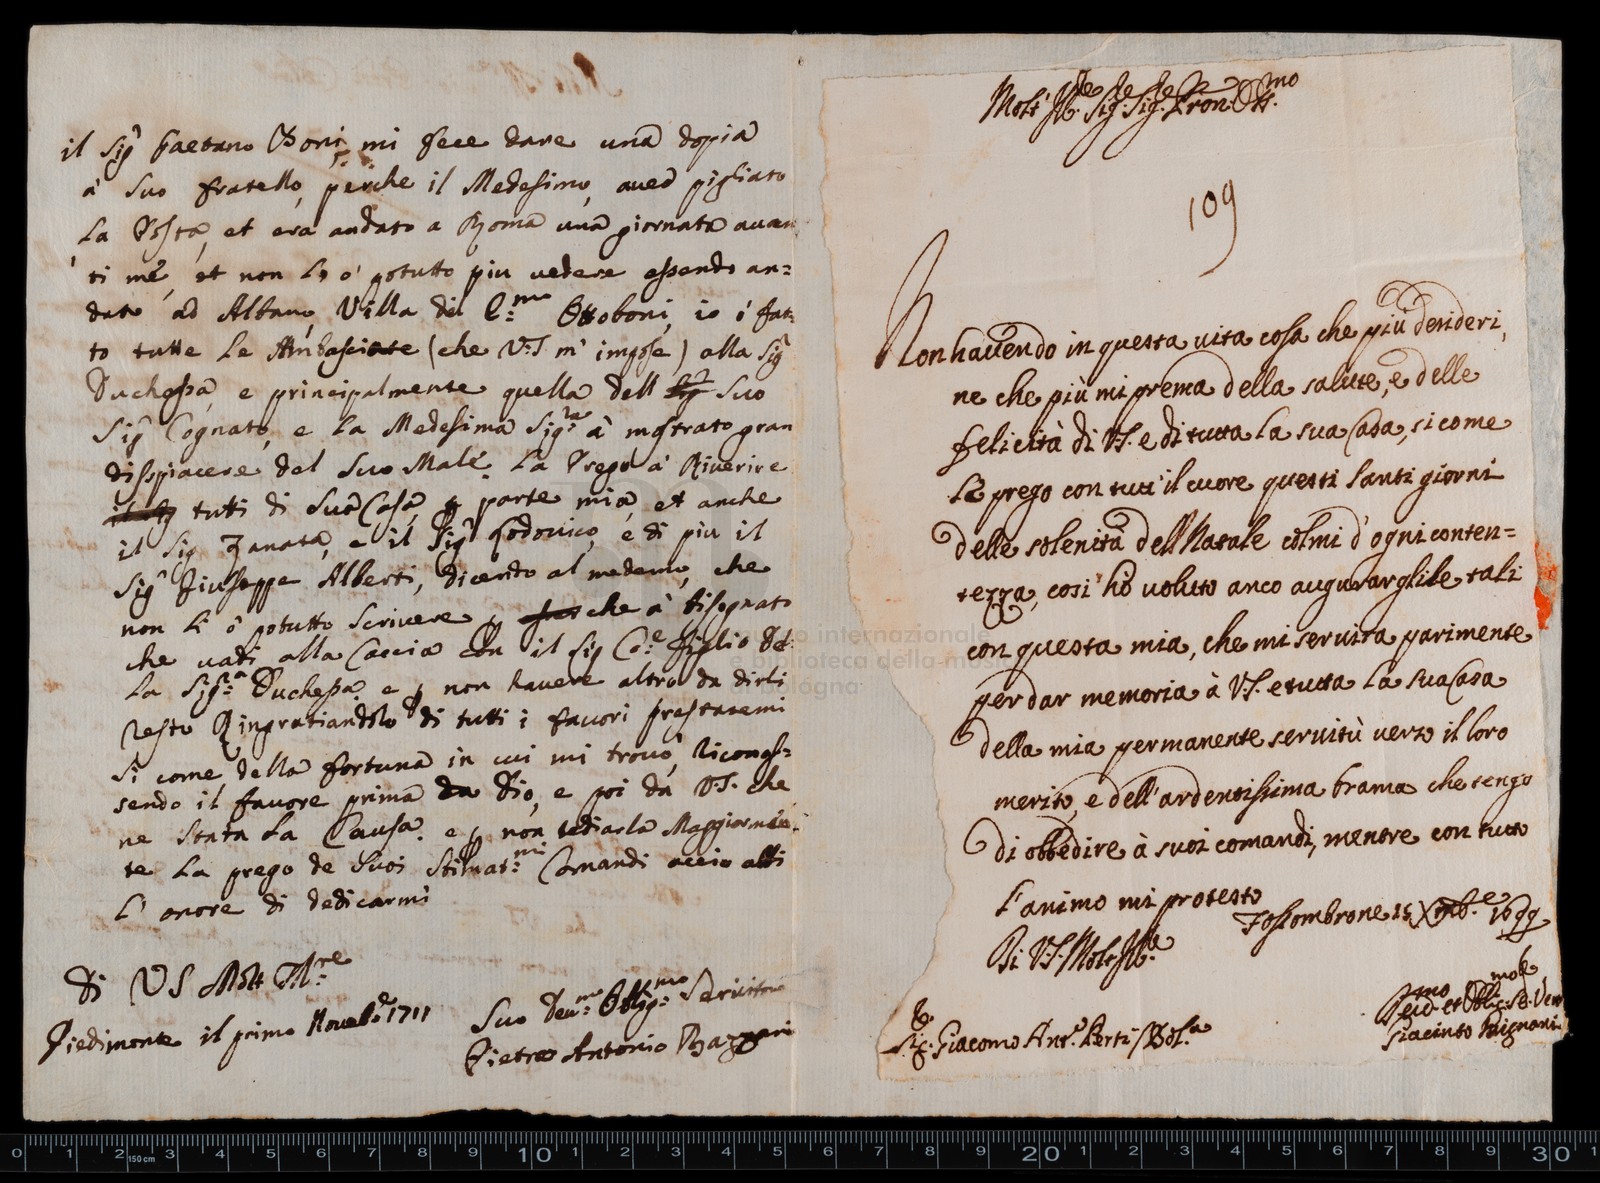 il Sig.r Gaetano Boni, mi fece dare una dopia
à Suo fratello, perche il Medesimo, aued pigliato
la Posta, et era andato a Roma una giornata auan
ti mé, et non lo ó potutto piu uedere essendo an=
dato ad Albano, Villa del E:mo Ottoboni, io ó fat=
to tutte le Ambasciate (che V.S. m'impose) alla Sig.r
Duchessa, e principalmente quella dell Sig.r Suo
Sig.r Cognato, e la Medesima Sig.ra à mostrato gran
disspiacere del Suo Male. La Prego à Riuerire
il Sig tutti di Sua Casa, p parte mia, et anche
il Sig Zanata, e il Sig.r Lodouico, e di piu il
Sig.r Giuseppe Alberti, dicendo al medemo, che
non li ó potutto scriuere p che à bisognato
che uadi alla Caccia con il Sig Co:e figlio del
la Sig.ra Duchessa, e p non hauere altro da dirli
resto Ringratiandolo di tutti i fauori prestatemi
si come della fortuna in cui mi trouo, Riconos=
sendo il fauore prima da Dio, e poi da V.S. che
ne Stata la Causa. e p non tediarla Maggiormen=
te la prego de Suoi Stimat:mi Comandi accio abbi
l'onore di dedicarmi
Di VS Molt Ill:re
Piedimonte il primo Nouem.e 1711
Suo Deu:mo Oblig:mo Seruitore
Pietro Antonio Bazzani
Molt' Ill.re Sig.re Sig.re Pron. Oss.mo
109
Non hauendo in questa uita cosa che più desideri,
ne che più mi prema della salute, e delle
felicità di V.S. e di tutta la sua Casa, si come
le prego con tutt'il cuore questi Santi giorni
delle solenità dell Natale colmi d'ogni conten=
tezza, cosi hò voluto anco augurarglile tali
con questa mia, che mi seruirà parimente
per dar memoria à V.S. e tutta la sua Casa
della mia permanente seruitù uerso il loro
merito, e dell'ardentissima brama che tengo
di obbedire à suoi comandi, mentre con tutto
l'animo mi protesto
Fossombrone 15 Xmb.e 1699
Di V.S. Molt Ill.re
Sig.r Giacomo Ant.o Perti / Bol.a
Deuo.mo et Oblig. S.e Vero
Giacinto Mignani
museo internazionale
e biblioteca della musica
bologna
0 1 2 3 4 5 6 7 8 9 10 1 2 3 4 5 6 7 8 9 20 1 2 3 4 5 6 7 8 9 30 1
150 cm